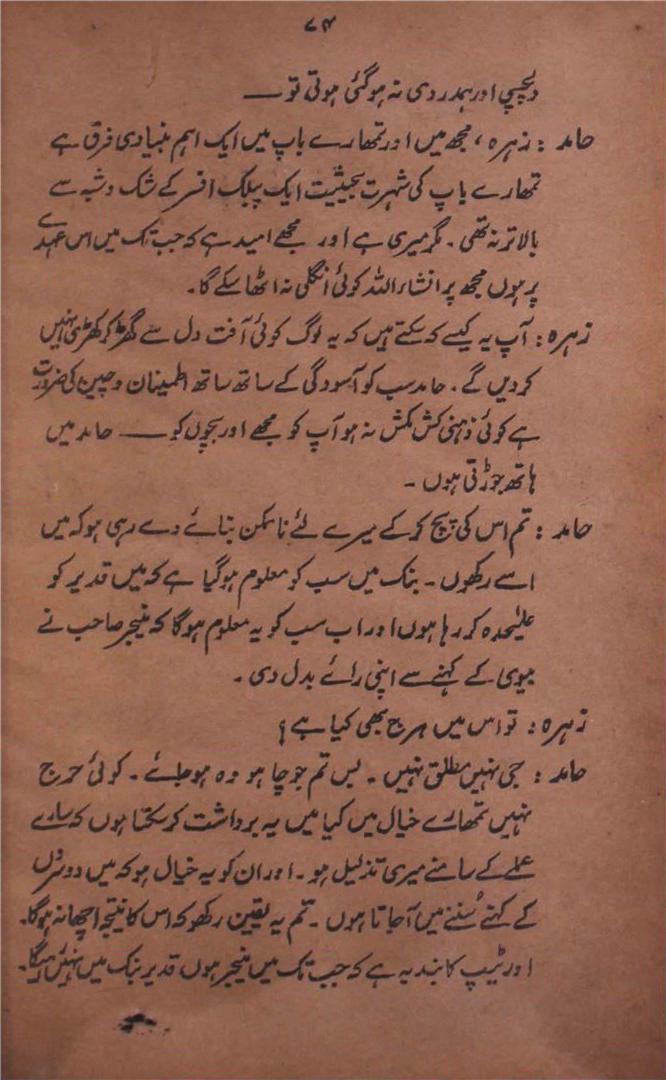 ۷۴
دلچسپی اور ہمدردی نہ ہوگئی ہوتی تو ——
حامد : زہرہ، مجھ میں اور تمھارے باپ میں ایک اہم بنیادی فرق ہے
تمھارے باپ کی شہرت بحیثیت ایک پبلک افسر کے شک و شبہ سے
بالاتر نہ تھی۔ مگر میری ہے اور مجھے امید ہے کہ جب تک میں اس عہدے
پر ہوں مجھ پر انشاء اللہ کوئی انگلی نہ اٹھا سکے گا۔
زہرہ : آپ یہ کیسے کہہ سکتے ہیں کہ یہ لوگ کوئی آفت دل سے گھڑ کر کھڑی نہیں
کردیں گے۔ حامد سب کو آسودگی کے ساتھ ساتھ اطمینان و چین کی ضرورت
ہے کوئی ذہنی کش مکش نہ ہو آپ کو مجھے اور بچوں کو —— حامد میں
ہاتھ جوڑتی ہوں۔
حامد : تم اس کی پچ کرکے میرے لئے ناممکن بنائے دے رہی ہو کہ میں
اسے رکھوں۔ بنک میں سب کو معلوم ہوگیا ہے کہ میں قدیر کو
علیٰحدہ کر رہا ہوں اور اب سب کو یہ معلوم ہوگا کہ منیجر صاحب نے
بیوی کے کہنے سے اپنی رائے بدل دی۔
زہرہ : تو اس میں ہرج بھی کیا ہے؟
حامد : جی نہیں مطلق نہیں۔ بس تم جو چاہو وہ ہو جائے۔ کوئی حرج
نہیں تمھارے خیال میں کیا میں یہ برداشت کرسکتا ہوں کہ سارے
عملے کے سامنے میری تذلیل ہو۔ اور ان کو یہ خیال ہو کہ میں دوسروں
کے کہنے سُننے میں آجاتا ہوں۔ تم یہ یقین رکھو کہ اس کا نتیجہ اچھا نہ ہوگا۔
اور ٹیپ کا بند یہ ہے کہ جب تک میں منیجر ہوں قدیر بنک میں نہیں رہیگا۔